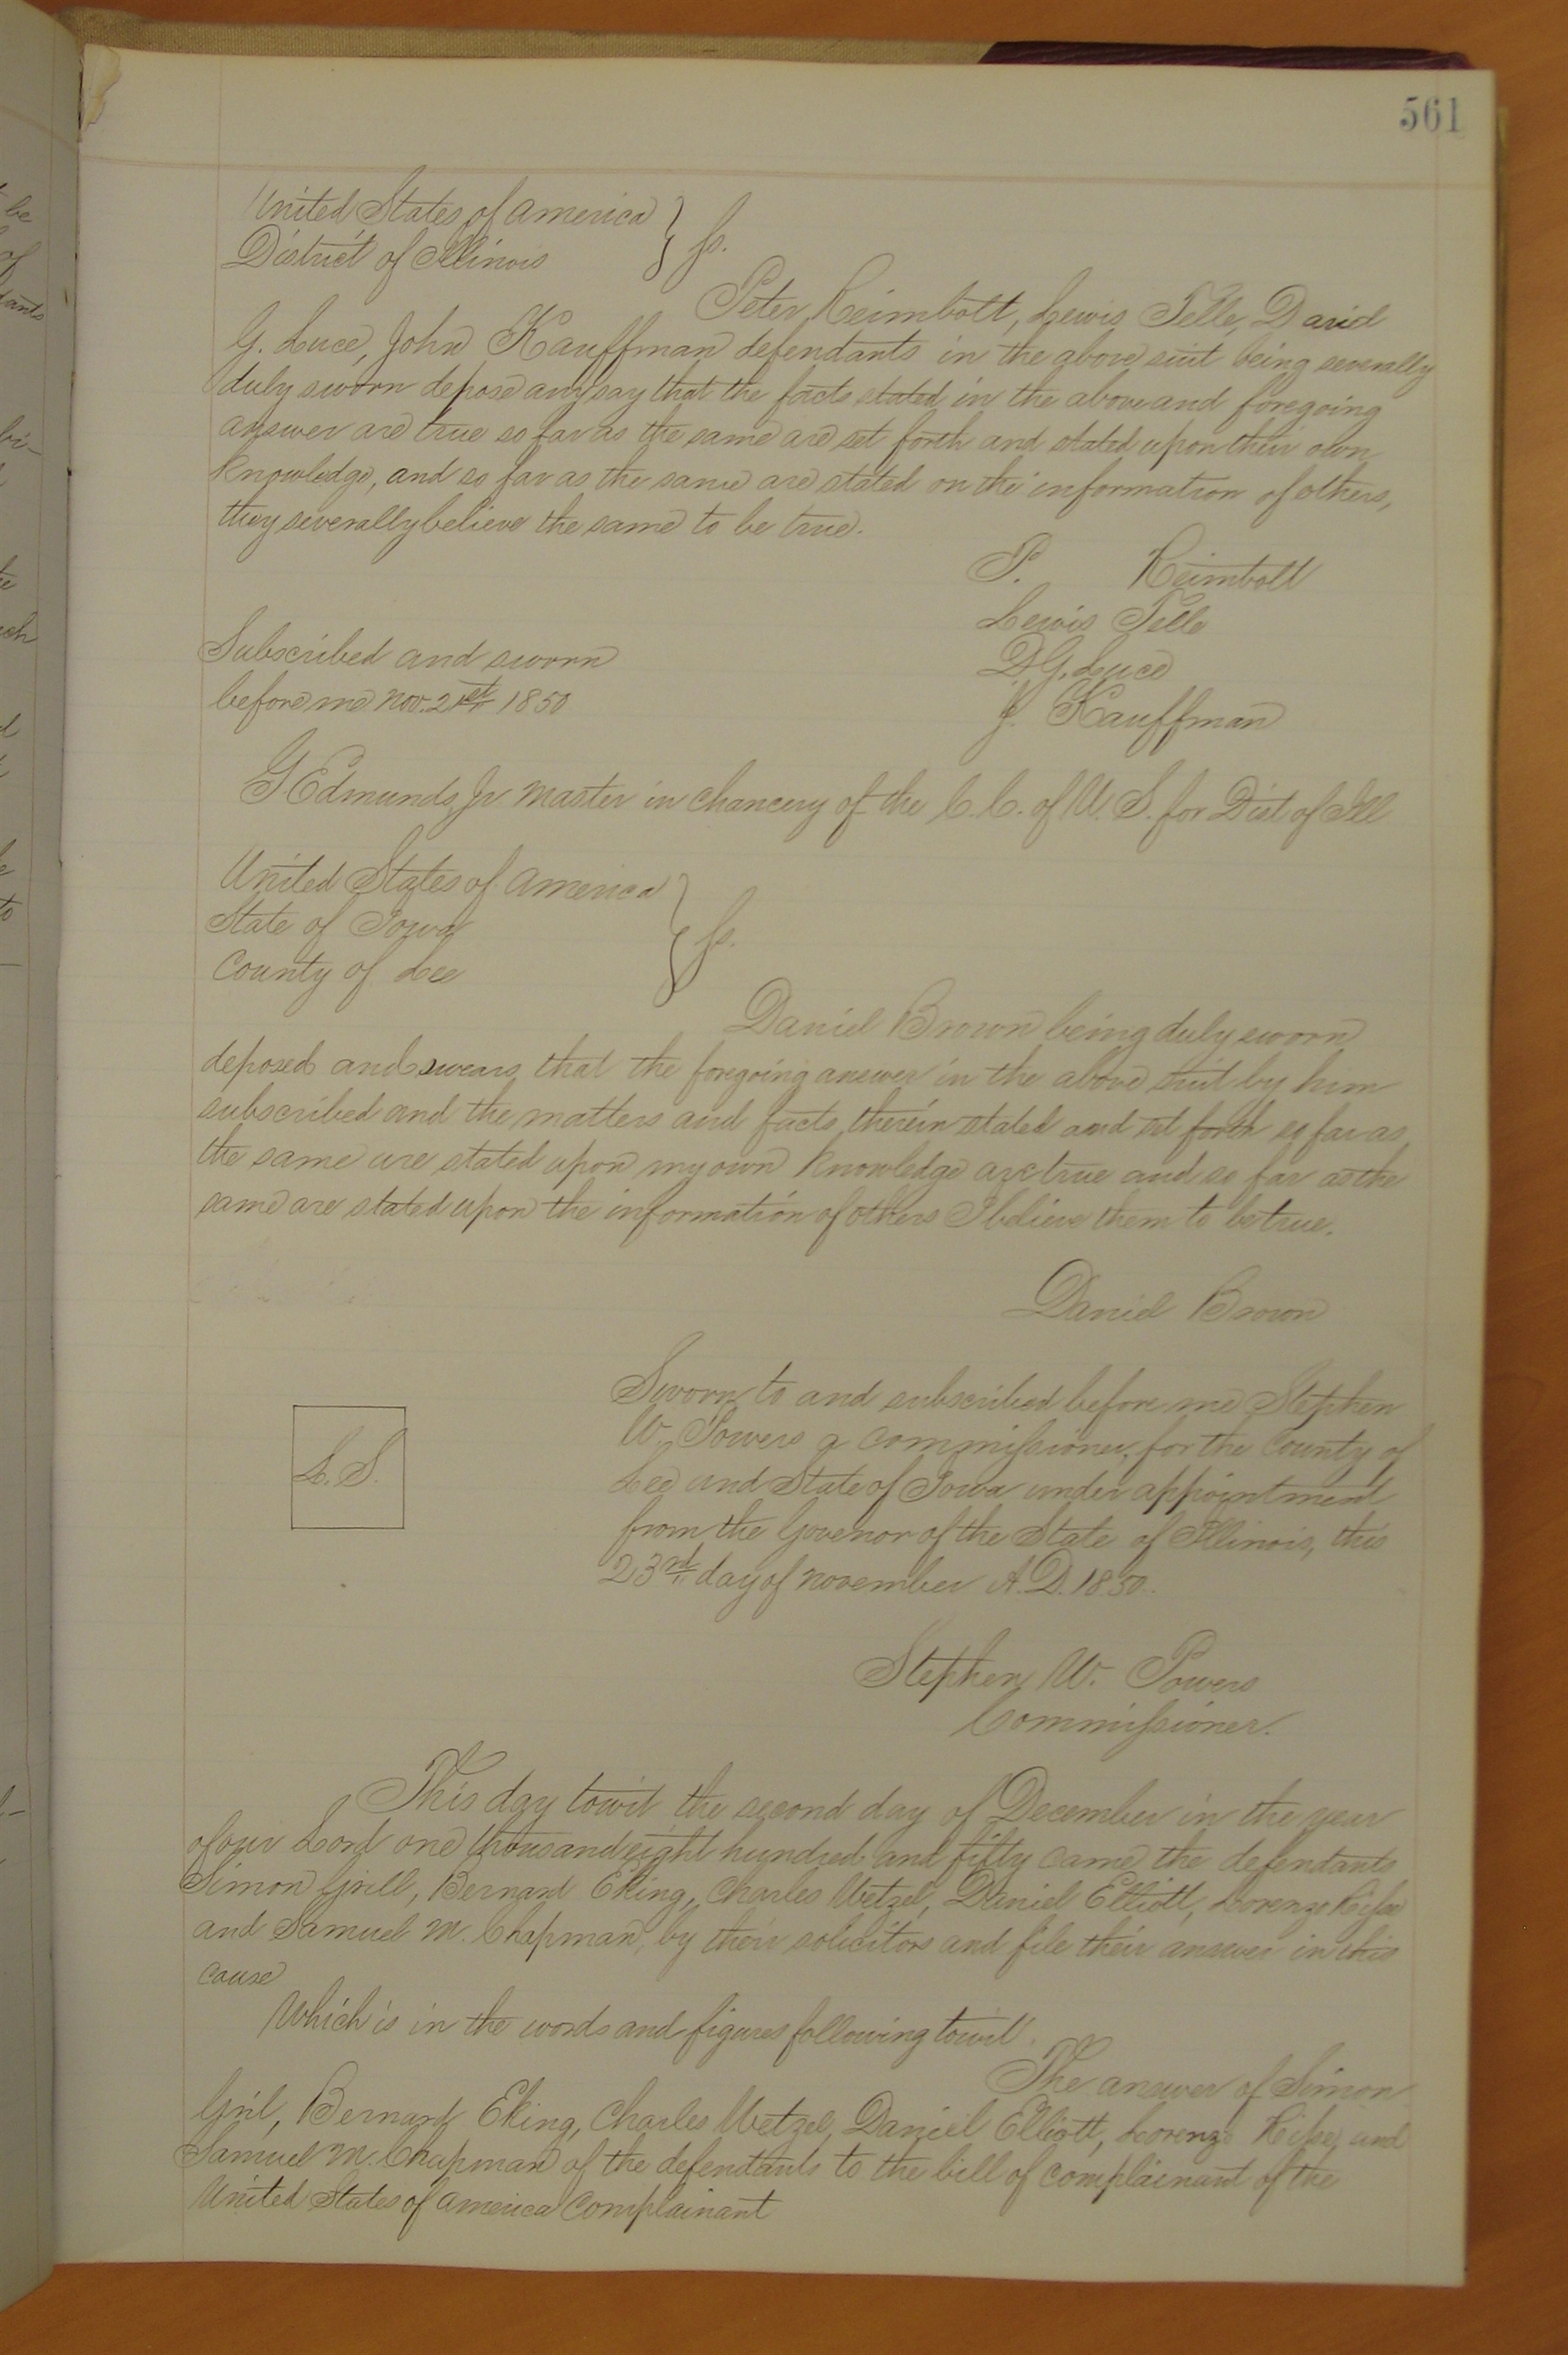 561
United States of America } ss.
District of Illinois
Peter Reimbolt, Lewis Telle, David
G. Luce, John Kauffman defendants in the above suit being severally
duly sworn depose any say that the facts stated in the above and foregoing
answer are true so far as the same are set forth and stated upon their own
knowledge, and so far as the same are stated on the information of others,
they severally believe the same to be true.
P. Reimbolt
Lewis Telle
D.G. Luce
J. Kauffman
Subscribed and sworn
before me Nov. 21st 1850
G Edmunds Jr Master in Chancery of the C.C. of U.S. for Dist of Ill
United States of America
State of Iowa } ss.
County of Lee
Daniel Brown being duly sworn
deposes and swears that the foregoing answer in the above suit by him
subscribed and the matters and facts therein stated and set forth so far as
the same are stated upon my own knowledge are true and so far as the
same are stated upon the information of others I believe them to be true.
Daniel Brown
L.S.
Sworn to and subscribed before me Stephen
W. Powers a commissioner for the County of
Lee and State of Iowa under appointment
from the Govenor of the State of Illinois, this
23rd day of November A.D. 1850.
Stephen W. Powers
Commissioner.
This day towit the second day of December in the year
of our Lord one thousand eight hundred and fifty came the defendants
Simon Grill, Bernard Eking, Charles Wetzel, Daniel Elliott, Lorenzo
and Samuel M. Chapman, by their solicitors and file their answer in this
cause
Which is in the words and figures following towit.
The answer of Simon
Gril, Bernard Eking, Charles Wetzel, Daniel Elliott, Lorenzo and
Samuel M. Chapman of the defendants to the bill of complainant of the
United States of America Complainant